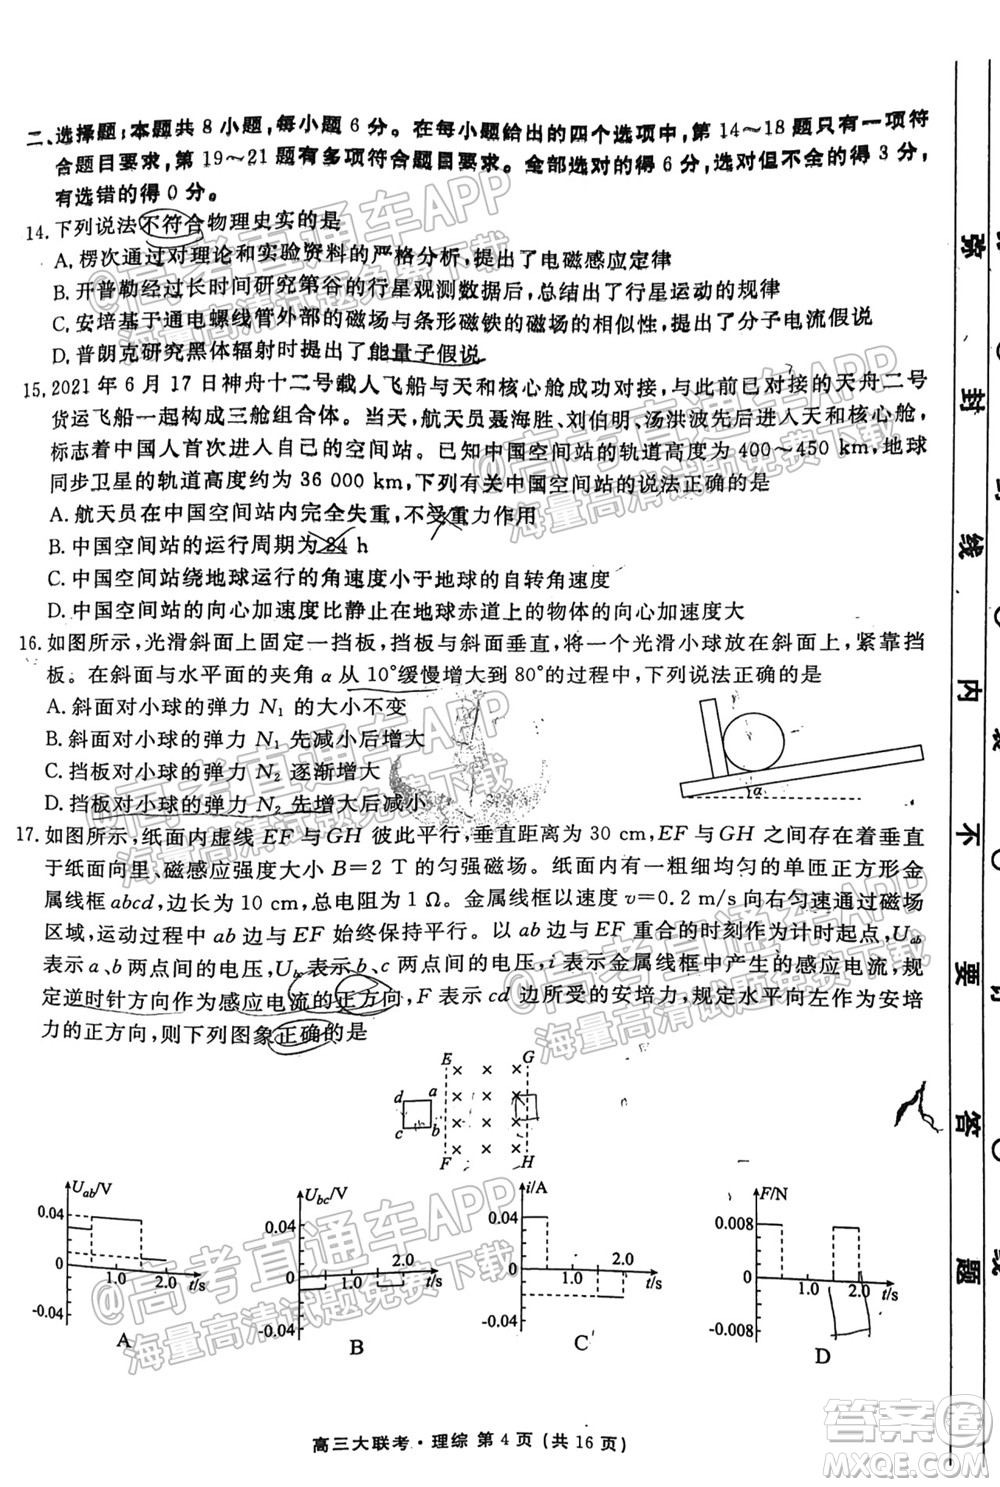 二、选择题:本题共 8 小题,每小题 6 分。在每小题给出的四个选项中,第 14～18 题只有一项符
合题目要求,第 19～21 题有多项符合题目要求。全部选对的得 6 分,选对但不全的得 3 分,
有选错的得 0 分。
14. 下列说法不符合物理史实的是
A. 楞次通过对理论和实验资料的严格分析,提出了电磁感应定律
B. 开普勒经过长时间研究第谷的行星观测数据,总结出了行星运动的规律
C. 安培基于通电螺线管外部的磁场与条形磁铁的磁场的相似性,提出了分子电流假说
D. 普朗克研究黑体辐射时提出了能量子假说
15. 2021 年 6 月 17 日神舟十二号载人飞船与天和核心舱成功对接,与此前已对接的天舟二号
货运飞船一起构成三舱组合体。当天,航天员聂海胜、刘伯明、汤洪波先后进入天和核心舱,
标志着中国人首次进入自己的空间站。已知中国空间站的轨道高度为 400～450 km,地球
同步卫星的轨道高度约为 36 000 km,下列有关中国空间站的说法正确的是
A. 航天员在中国空间站内完全失重,不受重力作用
B. 中国空间站的运行周期为 24 h
C. 中国空间站绕地球运行的角速度小于地球的自转角速度
D. 中国空间站的向心加速度比静止在地球赤道上的物体的向心加速度大
16. 如图所示,光滑斜面上固定一挡板,挡板与斜面垂直,将一个光滑小球放在斜面上,紧靠挡
板。在斜面与水平面的夹角 α 从 10°缓慢增大到 80°的过程中,下列说法正确的是
A. 斜面对小球的弹力 N₁ 的大小不变
B. 斜面对小球的弹力 N₁ 先减小后增大
C. 挡板对小球的弹力 N₂ 逐渐增大
D. 挡板对小球的弹力 N₂ 先增大后减小
α
17. 如图所示,纸面内虚线 EF 与 GH 彼此平行,垂直距离为 30 cm,EF 与 GH 之间存在着垂直
于纸面向里、磁感应强度大小 B=2 T 的匀强磁场。纸面内有一粗细均匀的单匝正方形金
属线框 abcd,边长为 10 cm,总电阻为 1 Ω。金属线框以速度 v=0.2 m/s 向右匀速通过磁场
区域,运动过程中 ab 边与 EF 始终保持平行。以 ab 边与 EF 重合的时刻作为计时起点,U_ab
表示 a、b 两点间的电压,U_bc 表示 b、c 两点间的电压,i 表示金属线框中产生的感应电流,规
定逆时针方向作为感应电流的正方向,F 表示 cd 边所受的安培力,规定水平向左作为安培
力的正方向,则下列图象正确的是
E G
d a
c b
F H
U_ab/V
0.04
0
1.0 2.0 t/s
-0.04
A
U_bc/V
0.04
0
1.0 2.0 t/s
-0.04
B
i/A
0.04
0
1.0 2.0 t/s
-0.04
C
F/N
0.008
0
1.0 2.0 t/s
-0.008
D
高三大联考・理综 第 4 页(共 16 页)
弥 封 线 内 不 要 答 题
@高考直通车APP
海量高清试题免费下载
@高考直通车APP
海量高清试题免费下载
@高考直通车APP
海量高清试题免费下载
@高考直通车APP
海量高清试题免费下载
@高考直通车APP
海量高清试题免费下载
答案卷
MXQE.COM